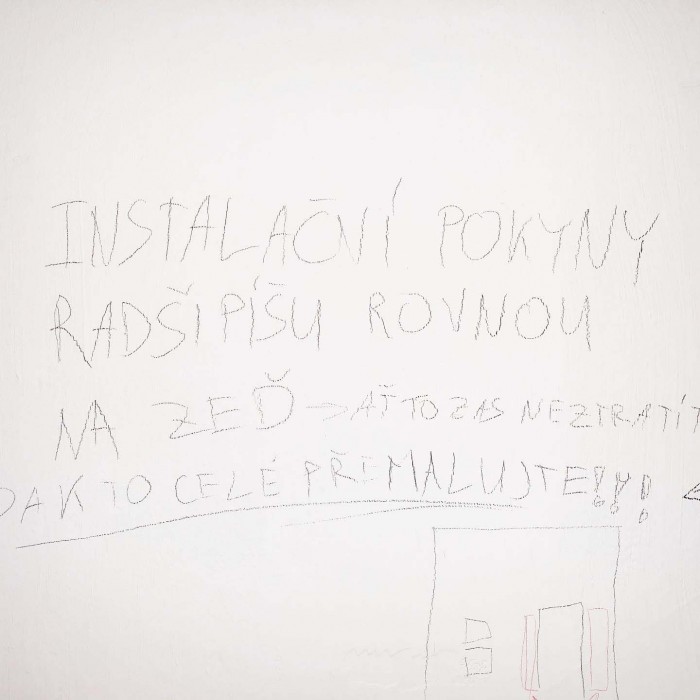 INSTALAČNÍ POKYNY
RADŠI PÍŠU ROVNOU
NA ZEĎ -> AŤ TO ZAS NEZTRATÍT
PAK TO CELÉ PŘEMALUJTE!!!